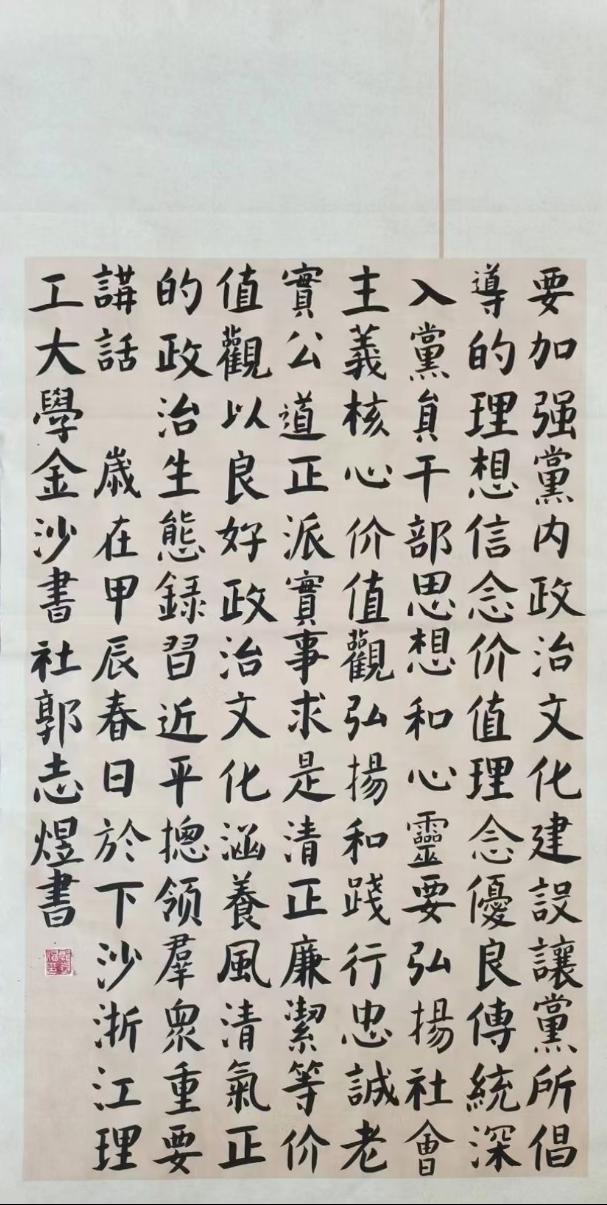 要加强黨内政治文化建設讓黨所倡
導的理想信念价值理念優良傳統深
入黨員干部思想和心靈要弘揚社會
主義核心价值觀弘揚和踐行忠誠老
實公道正派實事求是清正廉潔等价
值觀以良好政治文化涵養風清氣正
的政治生態録習近平摠领羣衆重要
講話 歲在甲辰春日於下沙浙江理
工大學金沙書社郭志煜書